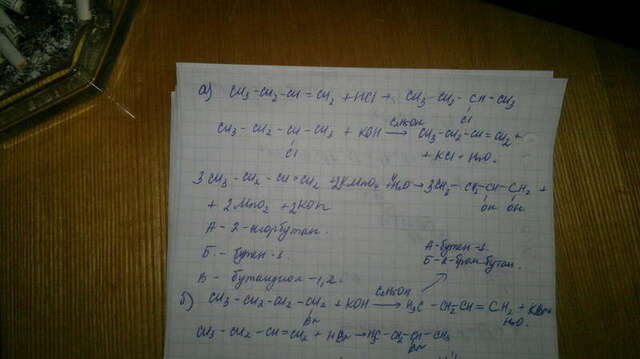 а) CH₃-CH₂-CH=CH₂ + HCl → CH₃-CH₂-CH-CH₃
Cl
CH₃-CH₂-CH-CH₃ + KOH → CH₃-CH₂-CH=CH₂ +
Cl
+ KCl + H₂O.
3CH₃-CH₂-CH=CH₂ + 2KMnO₄ + H₂O → 3CH₃-CH₂-CH-CH₂ +
OH OH
+ 2MnO₂ + 2KOH
А - 2-хлорбутан.
Б - бутен-1
В - бутандиол-1,2.
А-бутен-1.
Б-2-бромбутан.
б) CH₃-CH₂-CH₂-CH₂ + KOH → H₃C-CH₂-CH=CH₂ + KBr +
Br
H₂O.
CH₃-CH₂-CH=CH₂ + HBr → H₃C-CH₂-CH-CH₃
Br